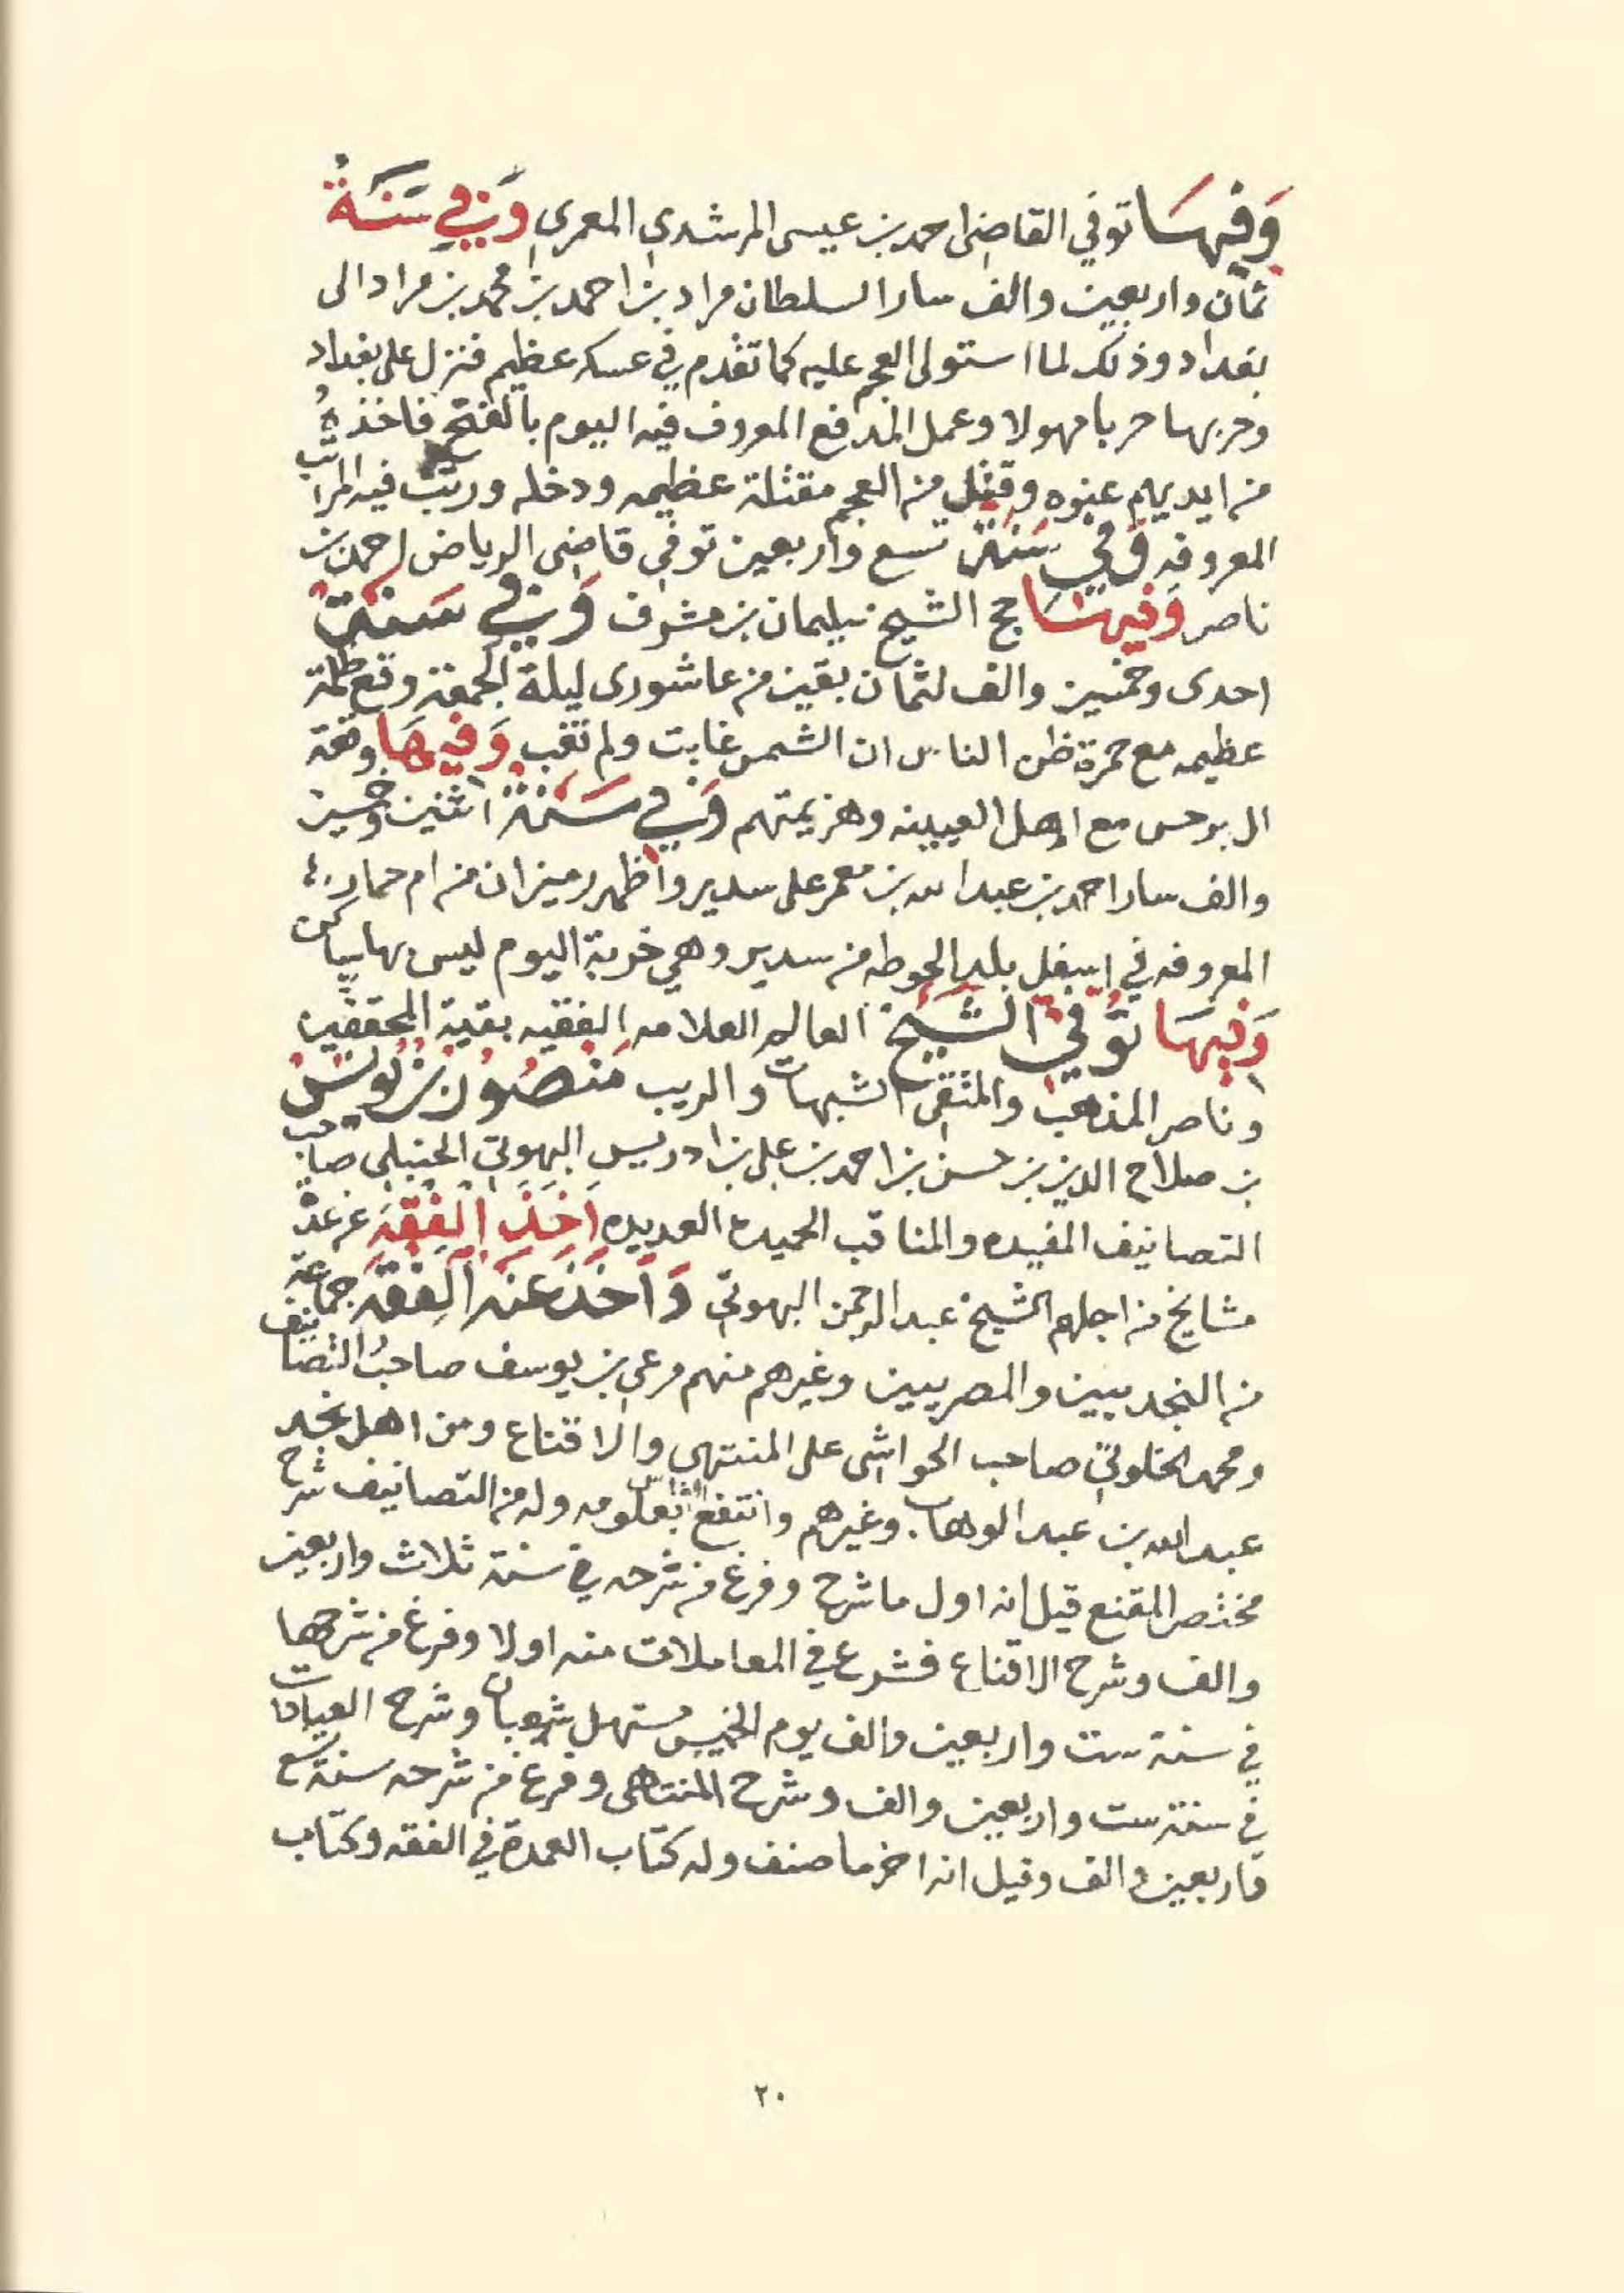 وَفيهَا توفي القاضي احمد بن عيسى المرشدي المعمري وَفي سَنَةُ
ثمان واربعين والف سار السلطان مراد بن احمد بن محمد بن مراد الى
بغداد وذلك لما استولى العجم عليه كما تقدم في عسكر عظيم فنزل على بغداد
وحربها حربا مهولا وعمل المدفع المعروف فيه اليوم بالفتح فاخذهُ
من ايديهم عنوه وقتل من العجم مقتلة عظيمه ودخله ورتب فيه المراتب
المعروفه وَفي سَنَة تسع واربعين توفي قاضي الرياض احمد بن
ناصر وَفيهَا حج الشيخ سليمان بن مشرف وَفي سَنَة
احدى وخمسين والف لثمان بقين من عاشورى ليلة الجمعة وقع ظلمة
عظيمه مع حمرة ظن الناس ان الشمس غابت ولم تغب وَفيهَا وقعة
ال بوحس مع اهل العيينه وهزيمتهم وَفي سَنَة اثنين وخمسين
والف سار احمد بن عبد الله بن معمر على سدير واظهر رميزان من ام حمار
المعروفه في اسفل بلد الحوطه من سدير وهي خربة اليوم ليس بها ساكن
وَفيهَا تُوفي الشَيخ العالم العلامه الفقيه بقية المحققين
وناصر المذهب والمتقى الشبهات والريب مَنصُور بن يُونسُ
بن صلاح الدين بن حسن بن احمد بن علي بن ادريس البهوتي الحنبلي صاحب
التصانيف المفيده والمناقب الحميدة العديده اَخَذَ الفِقهَ عن عدة
مشايخ من اجلهم الشيخ عبد الرحمن البهوتي وَاَخَذ عَنه الفِقهَ جماعة
من النجديين والمصريين وغيرهم منهم مرعي بن يوسف صاحبُ التصانيف
ومحمد الخلوتي صاحب الحواشي على المنتهى والاقناع ومن اهل نجد
عبد الله بن عبد الوهاب وغيرهم وانتفع الناس بعلومه وله من التصانيف شرح
مختصر المقنع قيل انه اول ما شرح وفرغ من شرحه في سنة ثلاث واربعين
والف وشرح الاقناع فشرع في المعاملات منه اولا وفرغ من شرحها
في سنة ست واربعين والف يوم الخميس مستهل شعبان وشرح العبادات
في سنة ست واربعين والف وشرح المنتاهى وفرغ من شرحه سنة تسع
واربعين والف وقيل انه اخر ما صنف وله كتاب العمدة في الفقه وكتاب
٢٠